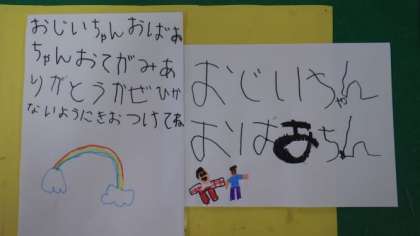 おじいちゃんおばあ
ちゃんおてがみあ
りがとうかぜひか
ないようにきおつけてね
おじいちゃん
おばあちゃん